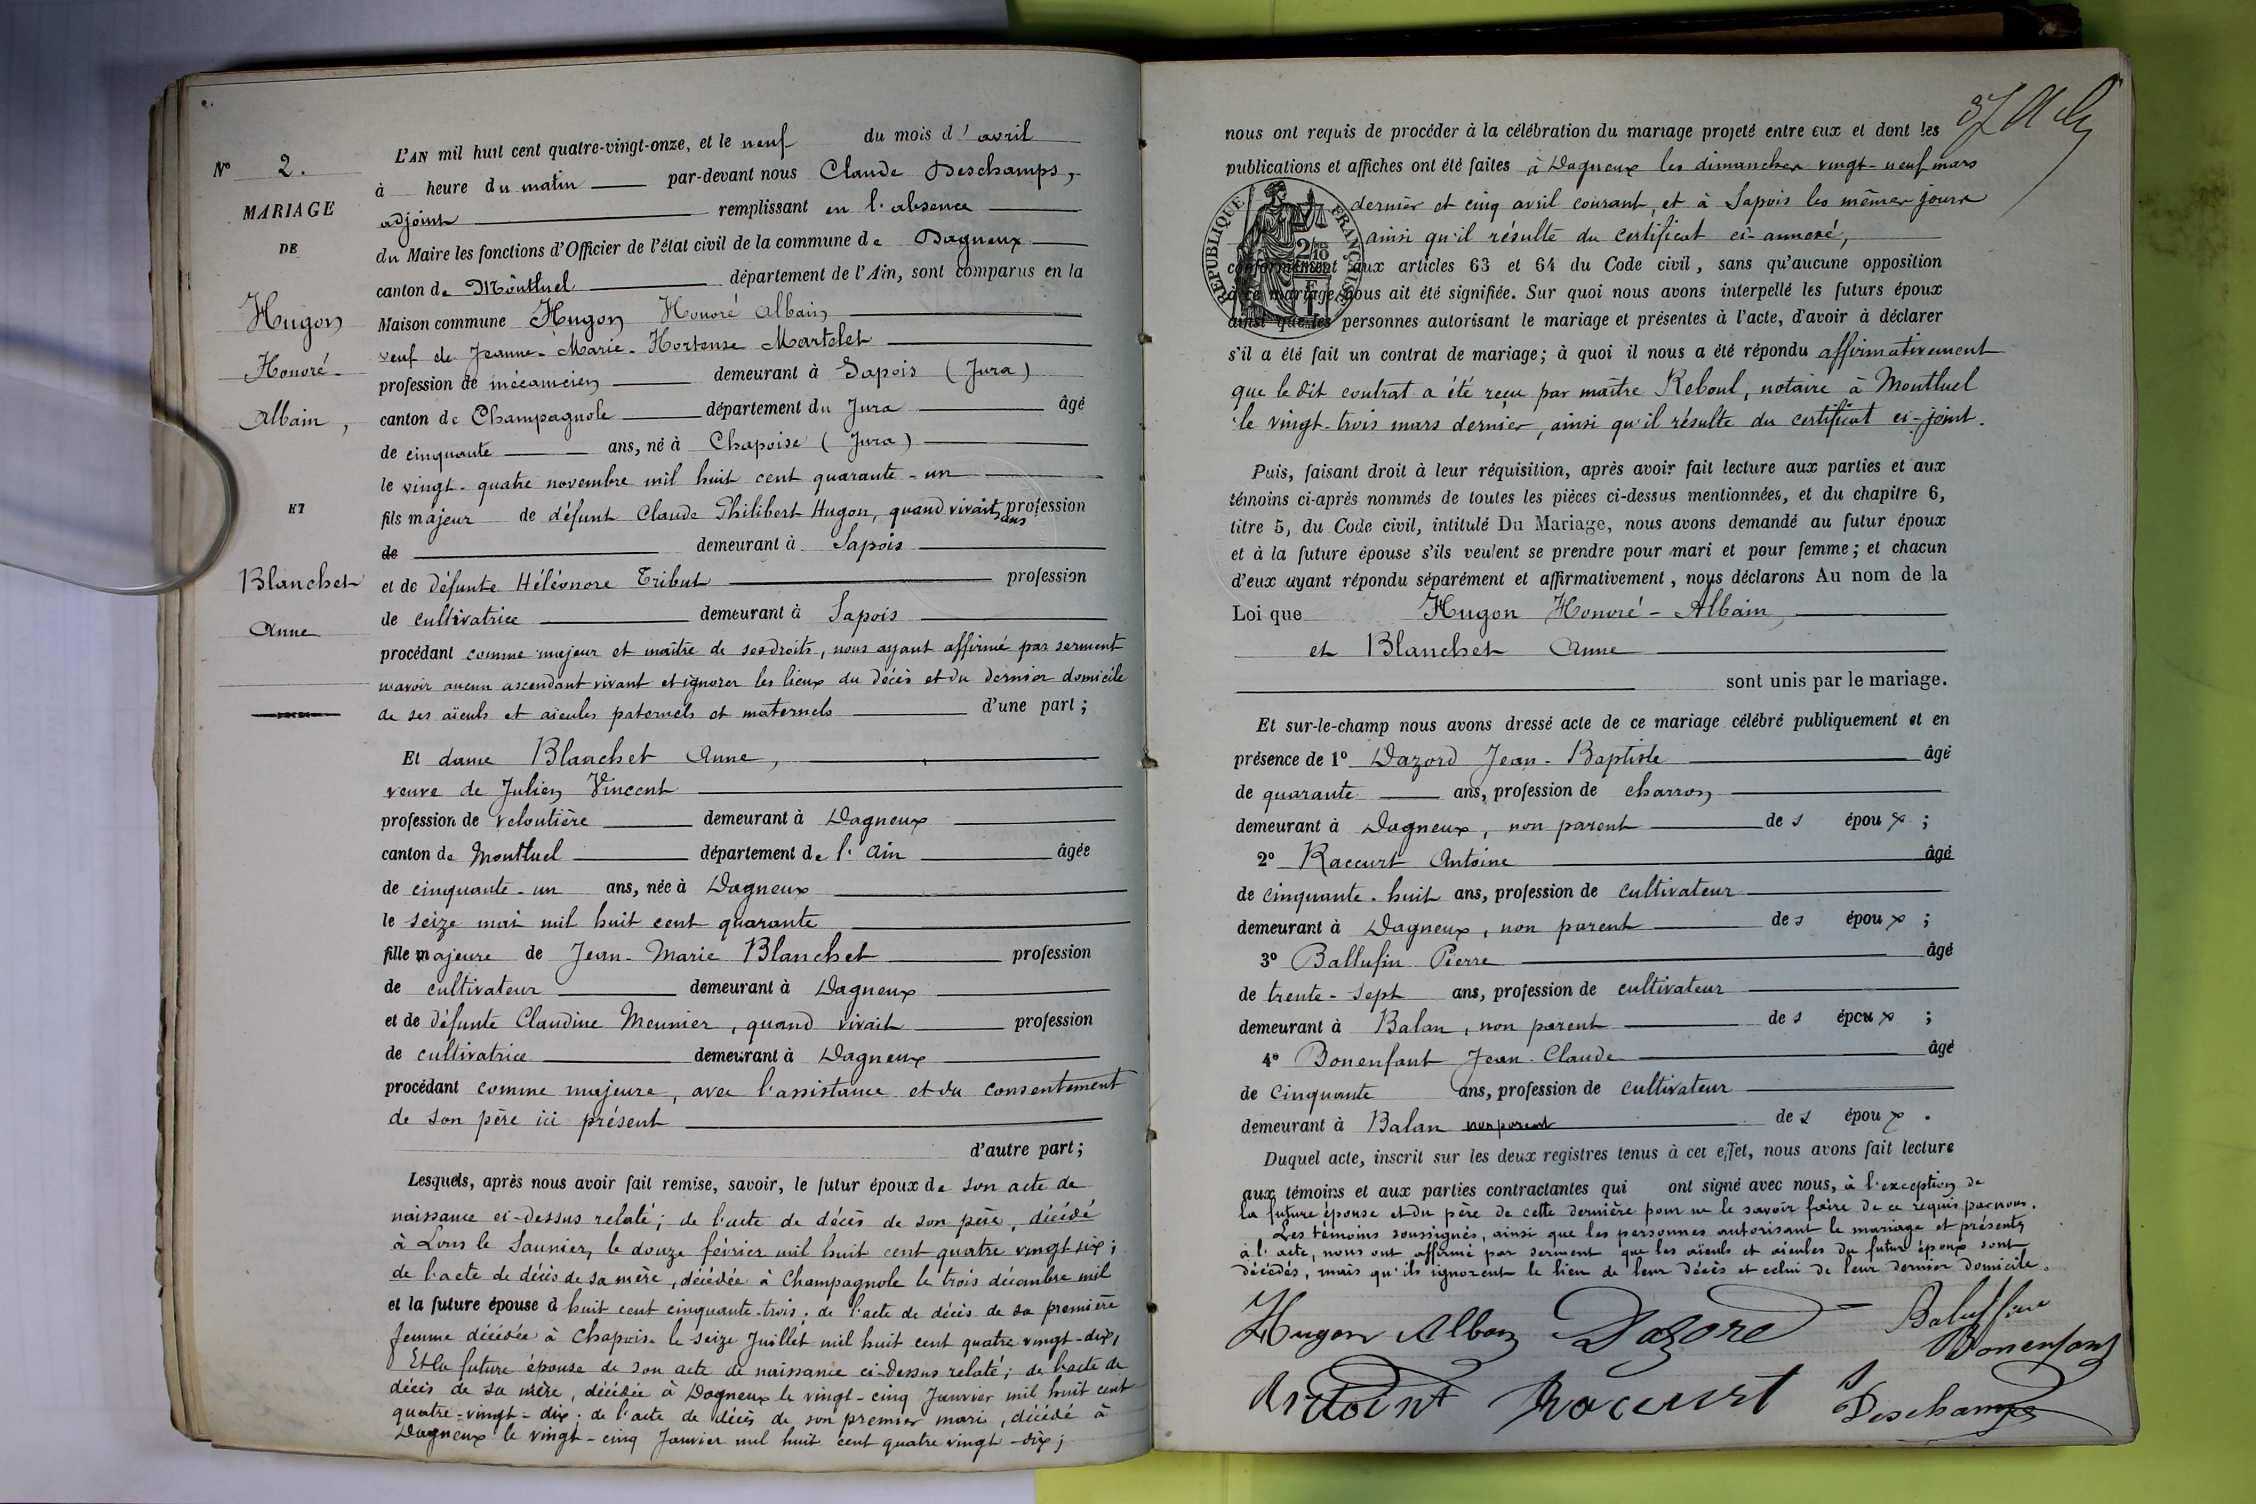 N° 2.
MARIAGE
DE
Hugon
Honoré-
Albain,
ET
Blanchet
Anne
L'AN mil huit cent quatre-vingt-onze, et le neuf du mois d'avril
à heure du matin par-devant nous Claude Deschamps,
adjoint remplissant en l'absence
du Maire les fonctions d'Officier de l'état civil de la commune de Dagneux
canton de Montluel département de l'Ain, sont comparus en la
Maison commune Hugon Honoré Albain
veuf de Jeanne-Marie-Hortense Martelet
profession de mécanicien demeurant à Sapois (Jura)
canton de Champagnole département du Jura âgé
de cinquante ans, né à Chapoise (Jura)
le vingt-quatre novembre mil huit cent quarante-un
fils majeur de défunt Claude Philibert Hugon, quand vivait sans profession
de demeurant à Sapois
et de défunte Héléonore Tribut profession
de cultivatrice demeurant à Sapois
procédant comme majeur et maître de ses droits, nous ayant affirmé par serment
n'avoir aucun ascendant vivant et ignorer les lieux du décès et du dernier domicile
de ses aïeuls et aïeules paternels et maternels d'une part;
Et dame Blanchet Anne,
veuve de Julien Vincent
profession de veloutière demeurant à Dagneux
canton de Montluel département de l'Ain âgée
de cinquante-un ans, née à Dagneux
le seize mai mil huit cent quarante
fille majeure de Jean-Marie Blanchet profession
de cultivateur demeurant à Dagneux
et de défunte Claudine Meunier, quand vivait profession
de cultivatrice demeurant à Dagneux
procédant comme majeure, avec l'assistance et du consentement
de son père ici présent
d'autre part;
Lesquels, après nous avoir fait remise, savoir, le futur époux de son acte de
naissance ci-dessus relaté; de l'acte de décès de son père, décédé
à Lons le Saunier, le douze février mil huit cent quatre vingt six;
de l'acte de décès de sa mère, décédée à Champagnole le trois décembre mil
et la future épouse d huit cent cinquante-trois; de l'acte de décès de sa première
femme décédée à Chapois le seize Juillet mil huit cent quatre vingt-dix,
Et la future épouse de son acte de naissance ci-dessus relaté; de l'acte de
décès de sa mère, décédée à Dagneux le vingt-cinq Janvier mil huit cent
quatre-vingt-dix; de l'acte de décès de son premier mari, décédé à
Dagneux le vingt-cinq Janvier mil huit cent quatre vingt-dix;
nous ont requis de procéder à la célébration du mariage projeté entre eux et dont les
publications et affiches ont été faites à Dagneux les dimanches vingt-neuf mars
dernier et cinq avril courant, et à Sapois les mêmes jours
ainsi qu'il résulte du certificat ci-annexé,
RÉPUBLIQUE FRANÇAISE
conformément aux articles 63 et 64 du Code civil, sans qu'aucune opposition
à ce mariage nous ait été signifiée. Sur quoi nous avons interpellé les futurs époux
ainsi que les personnes autorisant le mariage et présentes à l'acte, d'avoir à déclarer
s'il a été fait un contrat de mariage; à quoi il nous a été répondu affirmativement
que le dit contrat a été reçu par maître Reboul, notaire à Montluel
le vingt-trois mars dernier, ainsi qu'il résulte du certificat ci-joint.
Puis, faisant droit à leur réquisition, après avoir fait lecture aux parties et aux
témoins ci-après nommés de toutes les pièces ci-dessus mentionnées, et du chapitre 6,
titre 5, du Code civil, intitulé Du Mariage, nous avons demandé au futur époux
et à la future épouse s'ils veulent se prendre pour mari et pour femme; et chacun
d'eux ayant répondu séparément et affirmativement, nous déclarons Au nom de la
Loi que Hugon Honoré-Albain,
et Blanchet Anne
sont unis par le mariage.
Et sur-le-champ nous avons dressé acte de ce mariage célébré publiquement et en
présence de 1° Dazord Jean-Baptiste âgé
de quarante ans, profession de charron
demeurant à Dagneux, non parent des époux;
2° Raccurt Antoine âgé
de cinquante-huit ans, profession de cultivateur
demeurant à Dagneux, non parent des époux;
3° Ballufin Pierre âgé
de trente-sept ans, profession de cultivateur
demeurant à Balan, non parent des époux;
4° Bonenfant Jean-Claude âgé
de Cinquante ans, profession de cultivateur
demeurant à Balan non parent des époux.
Duquel acte, inscrit sur les deux registres tenus à cet effet, nous avons fait lecture
aux témoins et aux parties contractantes qui ont signé avec nous, à l'exception de
la future épouse et du père de cette dernière pour ne le savoir faire de ce requis par nous.
Les témoins soussignés, ainsi que les personnes autorisant le mariage et présents
à l'acte, nous ont affirmé par serment que les aïeuls et aïeules du futur époux sont
décédés, mais qu'ils ignorent le lieu de leur décès et celui de leur dernier domicile.
Hugon Alban Dazord Baluffin
Bonenfant
Antoint Raccurt Deschamps